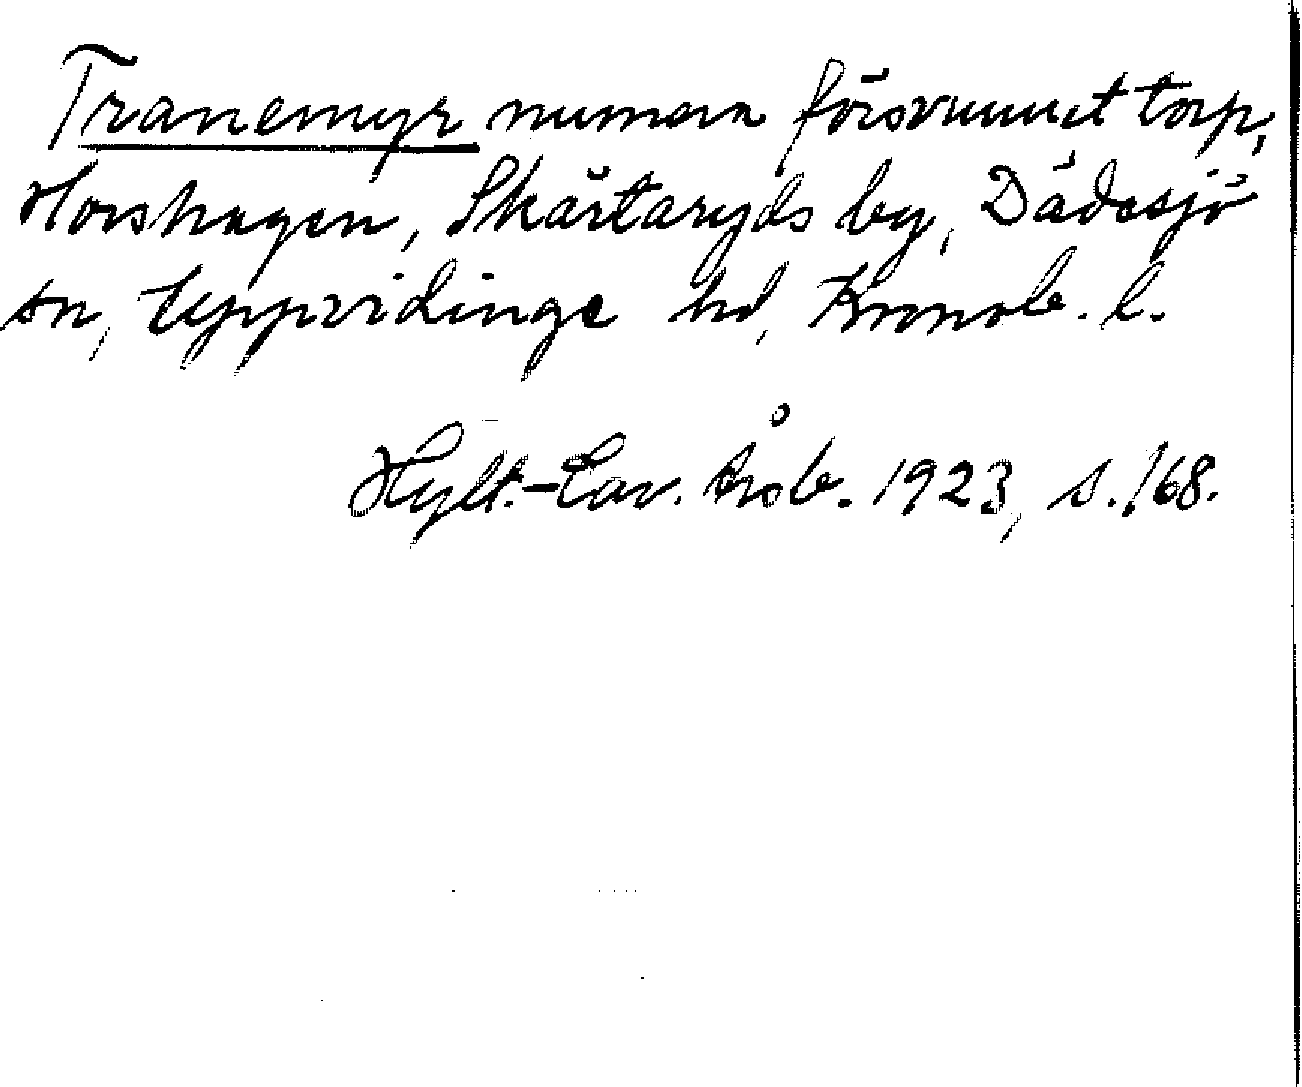 Tranemyr numera försvunnet torp,
Horshagen, Skärtaryds by, Dädesjö
sn, Uppvidinge hd, Kronob. l.
Hylt.-Cav. årsb. 1923, s. 168.